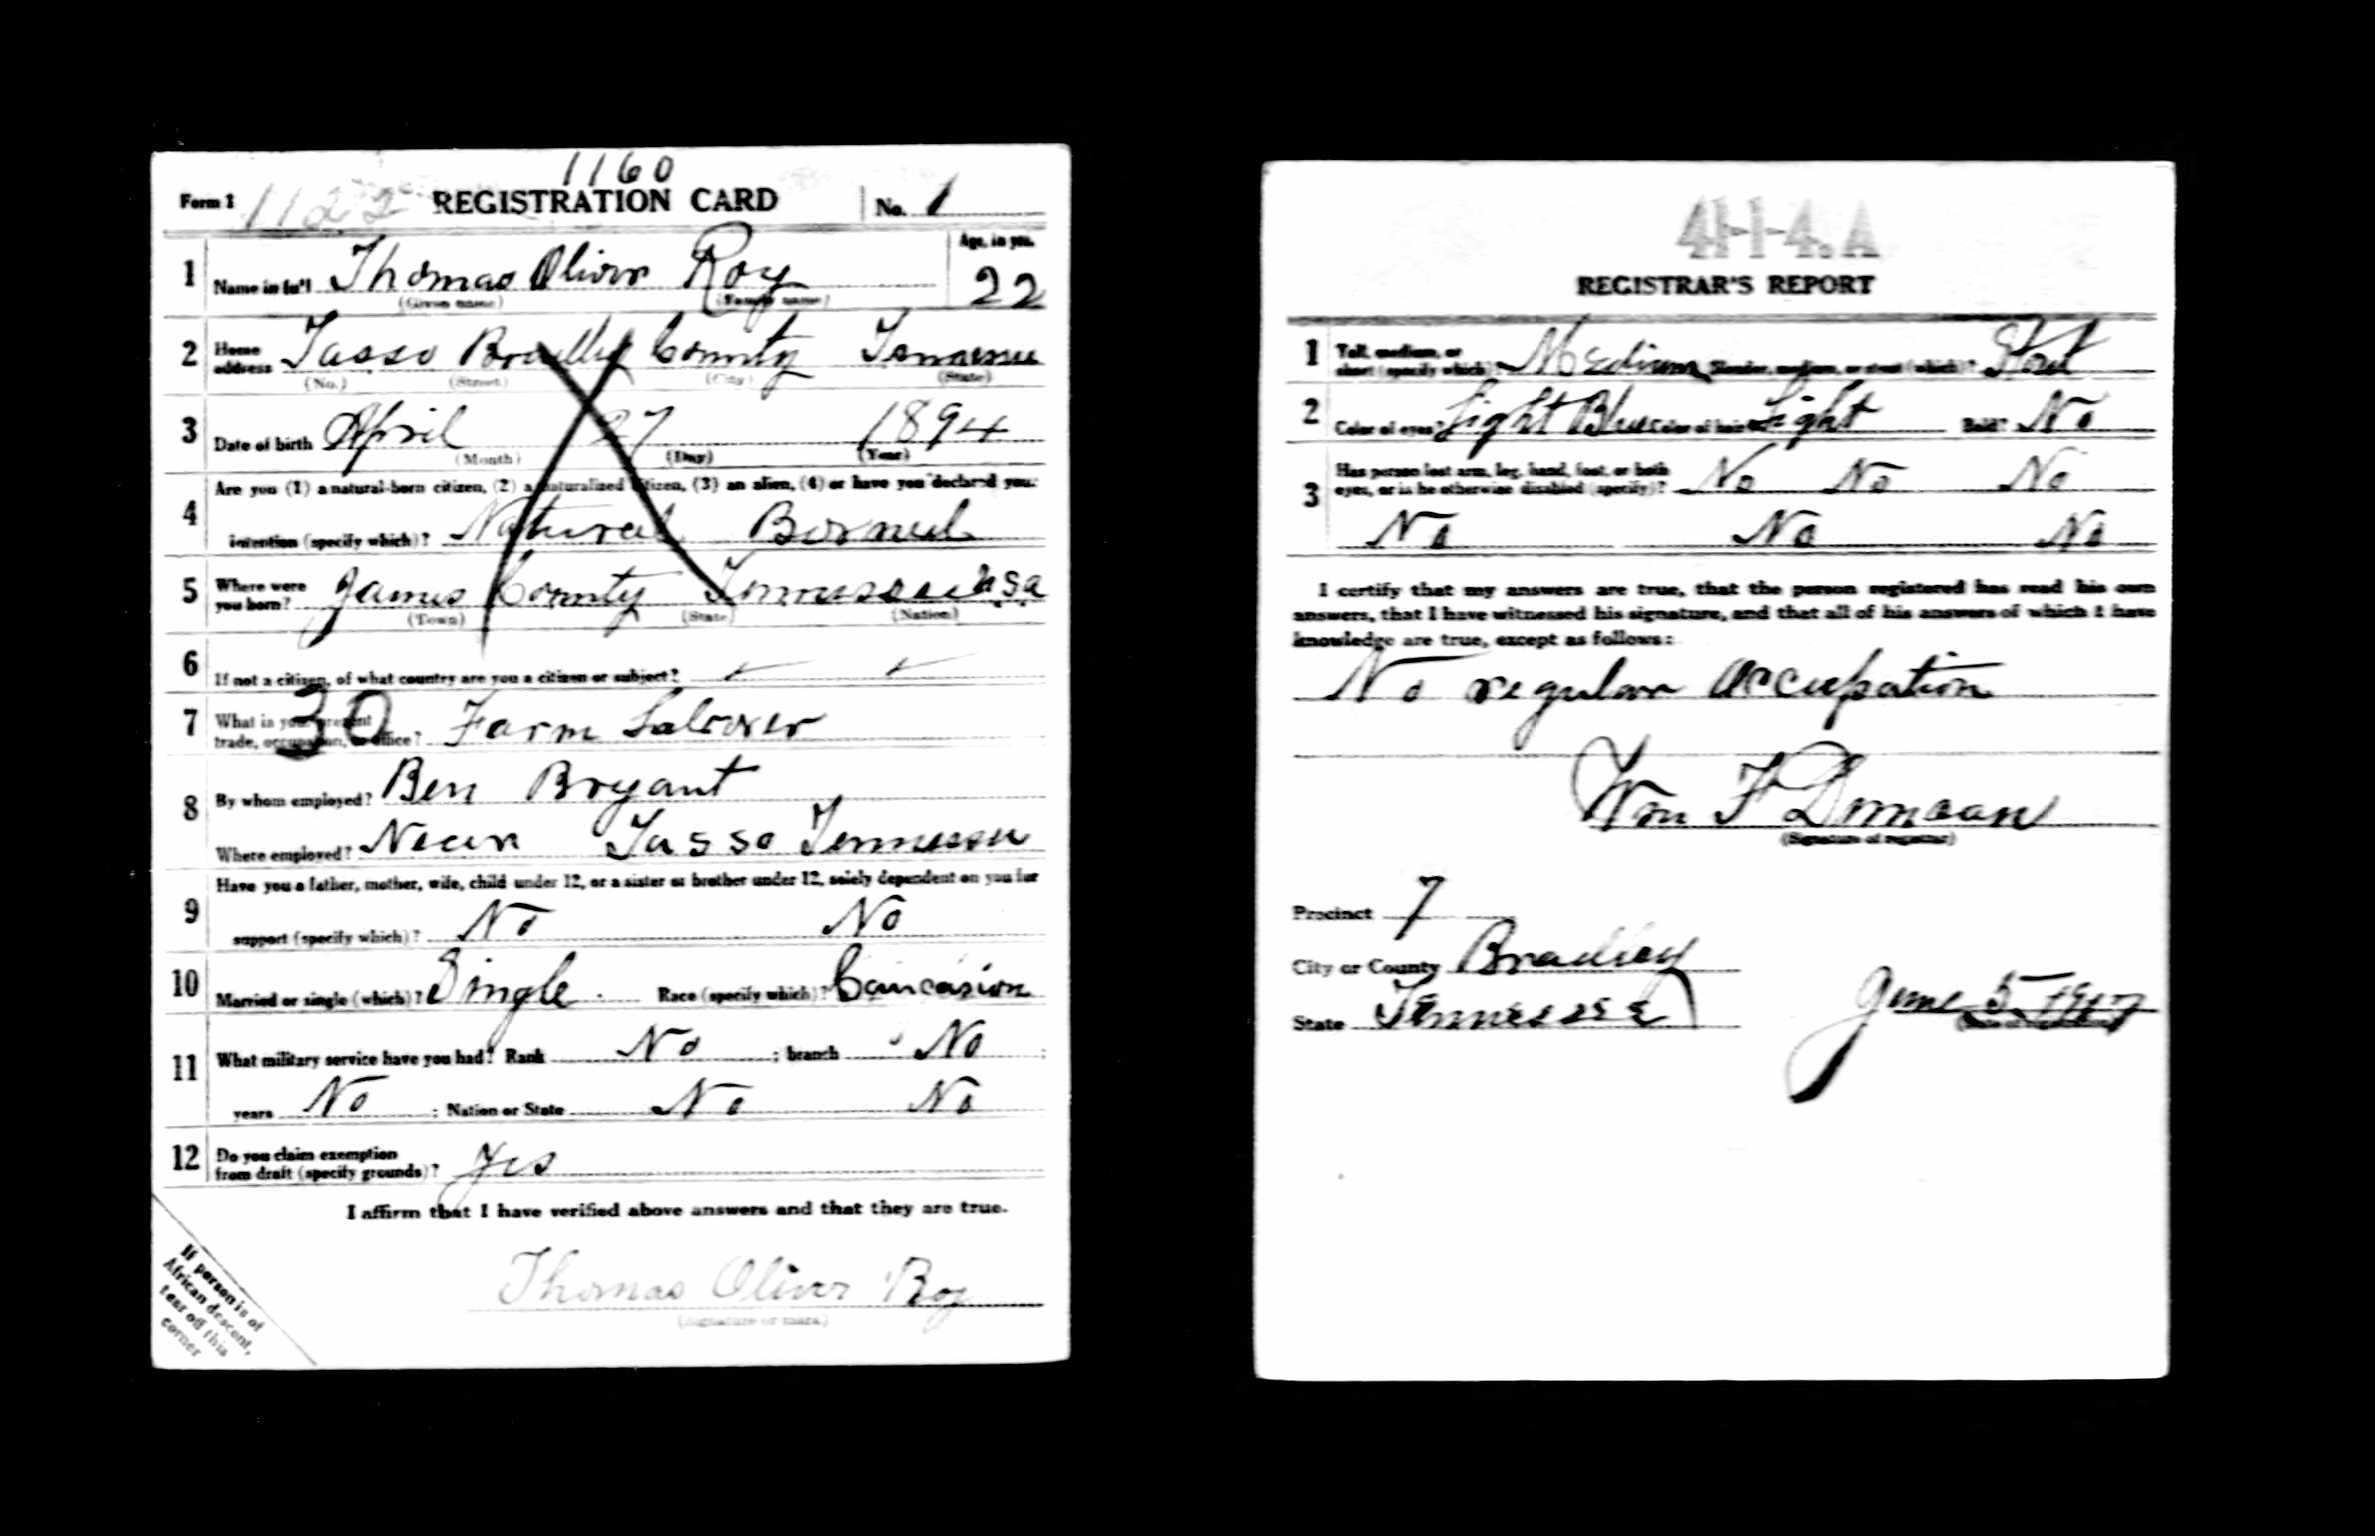 1160
Form 1 1122 REGISTRATION CARD No. 1
1 Name in full Thomas Oliver Roy Age, in yrs. 22
(Given name) (Family name)
2 Home address Tasso Bradley County Tennessee
(No.) (Street) (City) (State)
3 Date of birth April 27 1894
(Month) (Day) (Year)
4 Are you (1) a natural-born citizen, (2) a naturalized citizen, (3) an alien, (4) or have you declared your
intention (specify which)? Natural Borned
5 Where were you born? James County Tennessee USA
(Town) (State) (Nation)
6 If not a citizen, of what country are you a citizen or subject?
7 What is your present
trade, occupation, or office? 30 Farm Laborer
8 By whom employed? Ben Bryant
Where employed? Near Tasso Tennessee
9 Have you a father, mother, wife, child under 12, or a sister or brother under 12, solely dependent on you for
support (specify which)? No No
10 Married or single (which)? Single Race (specify which)? Caucasion
11 What military service have you had? Rank No ; branch No ;
years No ; Nation or State No No
12 Do you claim exemption
from draft (specify grounds)? Yes
I affirm that I have verified above answers and that they are true.
Thomas Oliver Roy
(Signature or mark)
If person is of
African descent,
tear off this
corner
41-1-4. A
REGISTRAR'S REPORT
1 Tall, medium, or
short (specify which)? Medium Slender, medium, or stout (which)? Stout
2 Color of eyes? Light Blue Color of hair? Light Bald? No
3 Has person lost arm, leg, hand, foot, or both
eyes, or is he otherwise disabled (specify)? No No No
No No No
I certify that my answers are true, that the person registered has read his own
answers, that I have witnessed his signature, and that all of his answers of which I have
knowledge are true, except as follows:
No regular occupation
Wm F Duncan
(Signature of registrar)
Precinct 7
City or County Bradley
State Tennessee June 5 1917
(Date of registration)